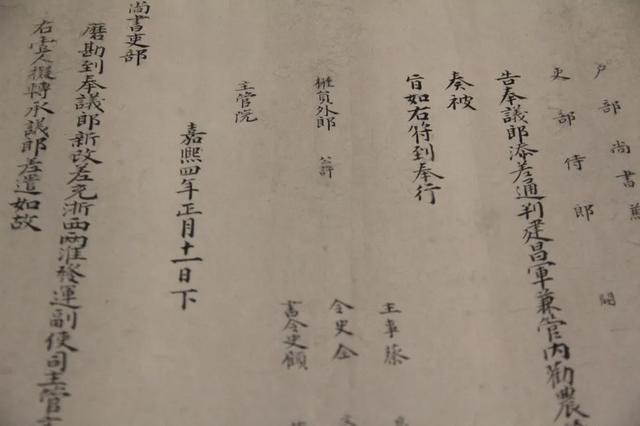 戶部尚書兼
吏部侍郎 闕
告奉議郎添差通判建昌軍兼管內勸農
奏被
旨如右符到奉行
主事蔡
權員外郎 公許 令史会
主管院 書令史顧
嘉熙四年正月十一日下
尚書吏部
磨勘到奉議郎新改差充浙西兩淮發運副使司主管
右壹人擬轉承議郎差遣如故